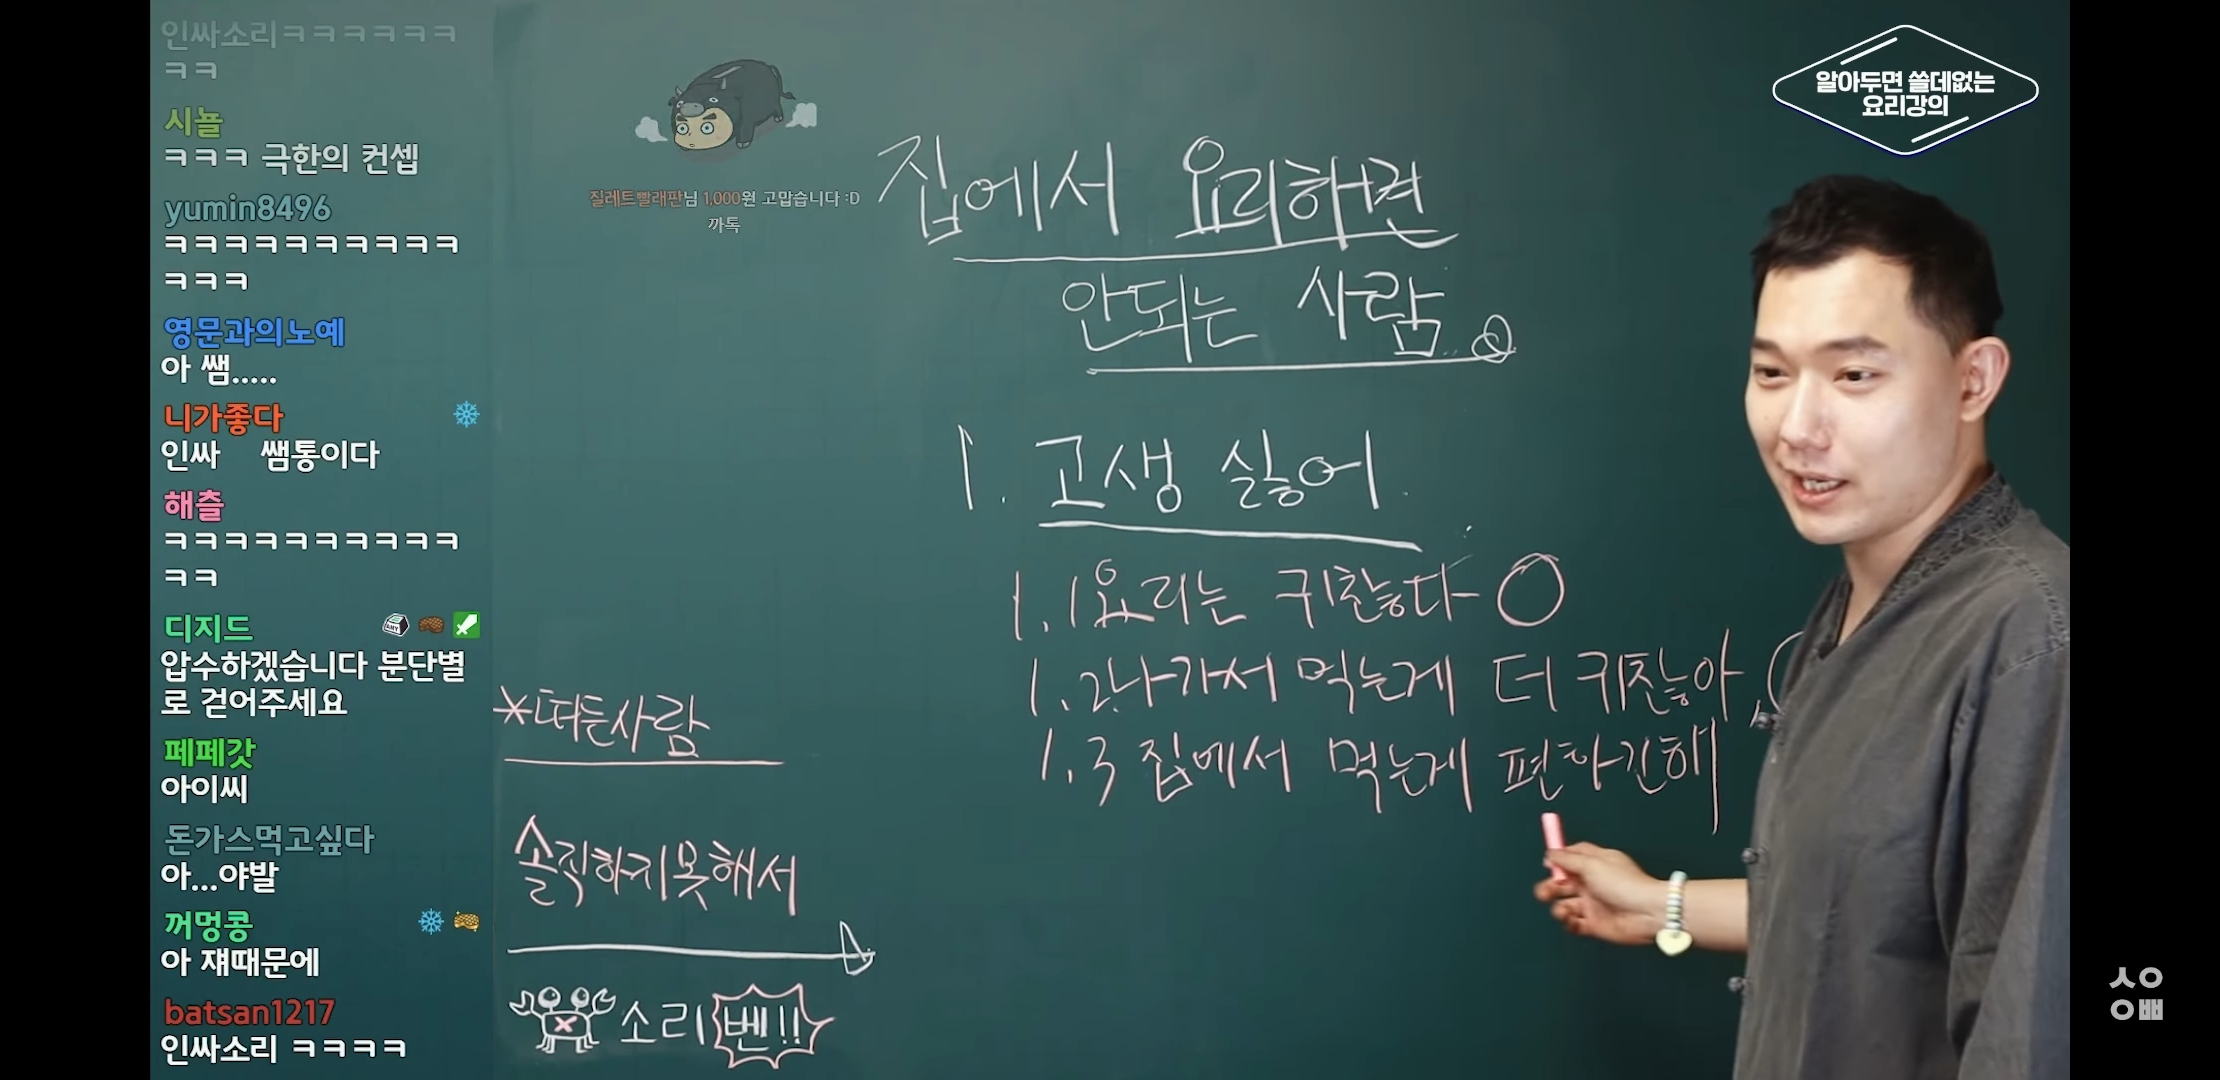 인싸소리ㅋㅋㅋㅋㅋㅋ
ㅋㅋ
시뇰
ㅋㅋㅋ 극한의 컨셉
yumin8496
ㅋㅋㅋㅋㅋㅋㅋㅋㅋㅋ
ㅋㅋㅋ
영문과의노예
아 쌤.....
니가좋다
인싸 쌤통이다
해츨
ㅋㅋㅋㅋㅋㅋㅋㅋㅋㅋ
ㅋㅋ
디지드
압수하겠습니다 분단별
로 걷어주세요
페페갓
아이씨
돈가스먹고싶다
아...야발
꺼멍콩
아 쟤때문에
batsan1217
인싸소리 ㅋㅋㅋㅋ
질레트빨래판님 1,000원 고맙습니다 :D
까톡
알아두면 쓸데없는
요리강의
집에서 요리하면
안되는 사람
1. 고생 싫어.
1.1 요리는 귀찮다
1.2 나가서 먹는게 더 귀찮아
1.3 집에서 먹는게 편하긴해
*떠든사람
솔직하지못해서
소리 벤!!